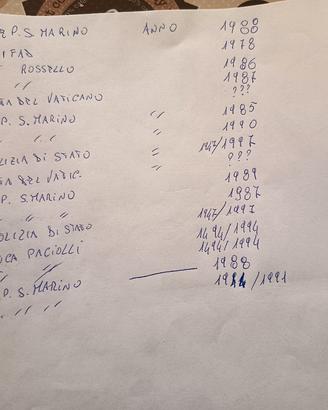 P. S. MARINO ANNO 1988
IFAD 1978
ROSSELLO 1986
" 1987
DEL VATICANO ???
P. S. MARINO " 1985
" " " 1990
LIZIA DI STATO " 1947/1997
DEL VATIC. " ???
P. S. MARINO 1989
" " 1987
OLIZIA DI STATO 1947/1997
CA PACIOLLI 1494/1994
" 1494/1994
P. S. MARINO 1988
" " /1991